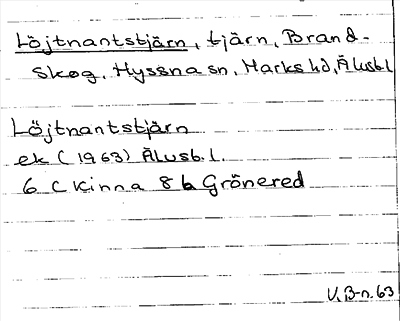 Löjtnantstjärn, tjärn, Brand-
skog, Hyssna sn, Marks hd, Älvsb.l
Löjtnantstjärn
ek (1963) Älvsb.l.
6 C Kinna 8 b Grönered
V.B-n. 63